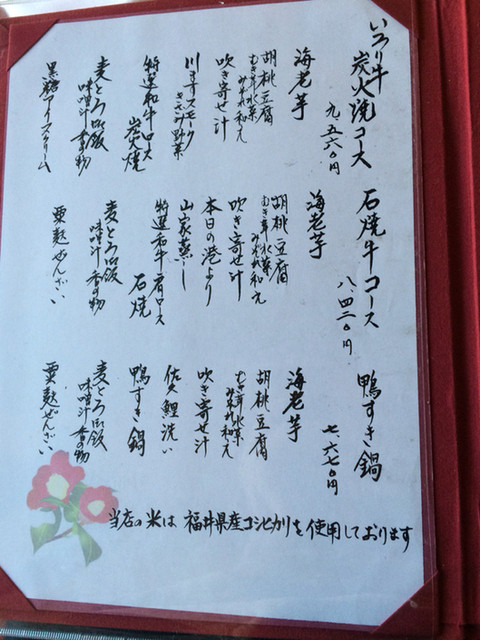 いろり牛
炭火焼コース
九、五六〇円
海老芋
胡桃豆腐
水菜
みぞれ和え
吹き寄せ汁
川ますスモーク
野菜
特選和牛ロース
炭火焼
麦とろ御飯
味噌汁 香の物
黒糖アイスクリーム
石焼牛コース
八、四二〇円
海老芋
胡桃豆腐
水菜
みぞれ和え
吹き寄せ汁
本日の港より
山家蒸し
特選和牛肩ロース
石焼
麦とろ御飯
味噌汁 香の物
粟麩ぜんざい
鴨すき鍋
七、六七〇円
海老芋
胡桃豆腐
水菜
みぞれ和え
吹き寄せ汁
佐久鯉洗い
鴨すき鍋
麦とろ御飯
味噌汁 香の物
粟麩ぜんざい
当店の米は 福井県産コシヒカリを使用しております